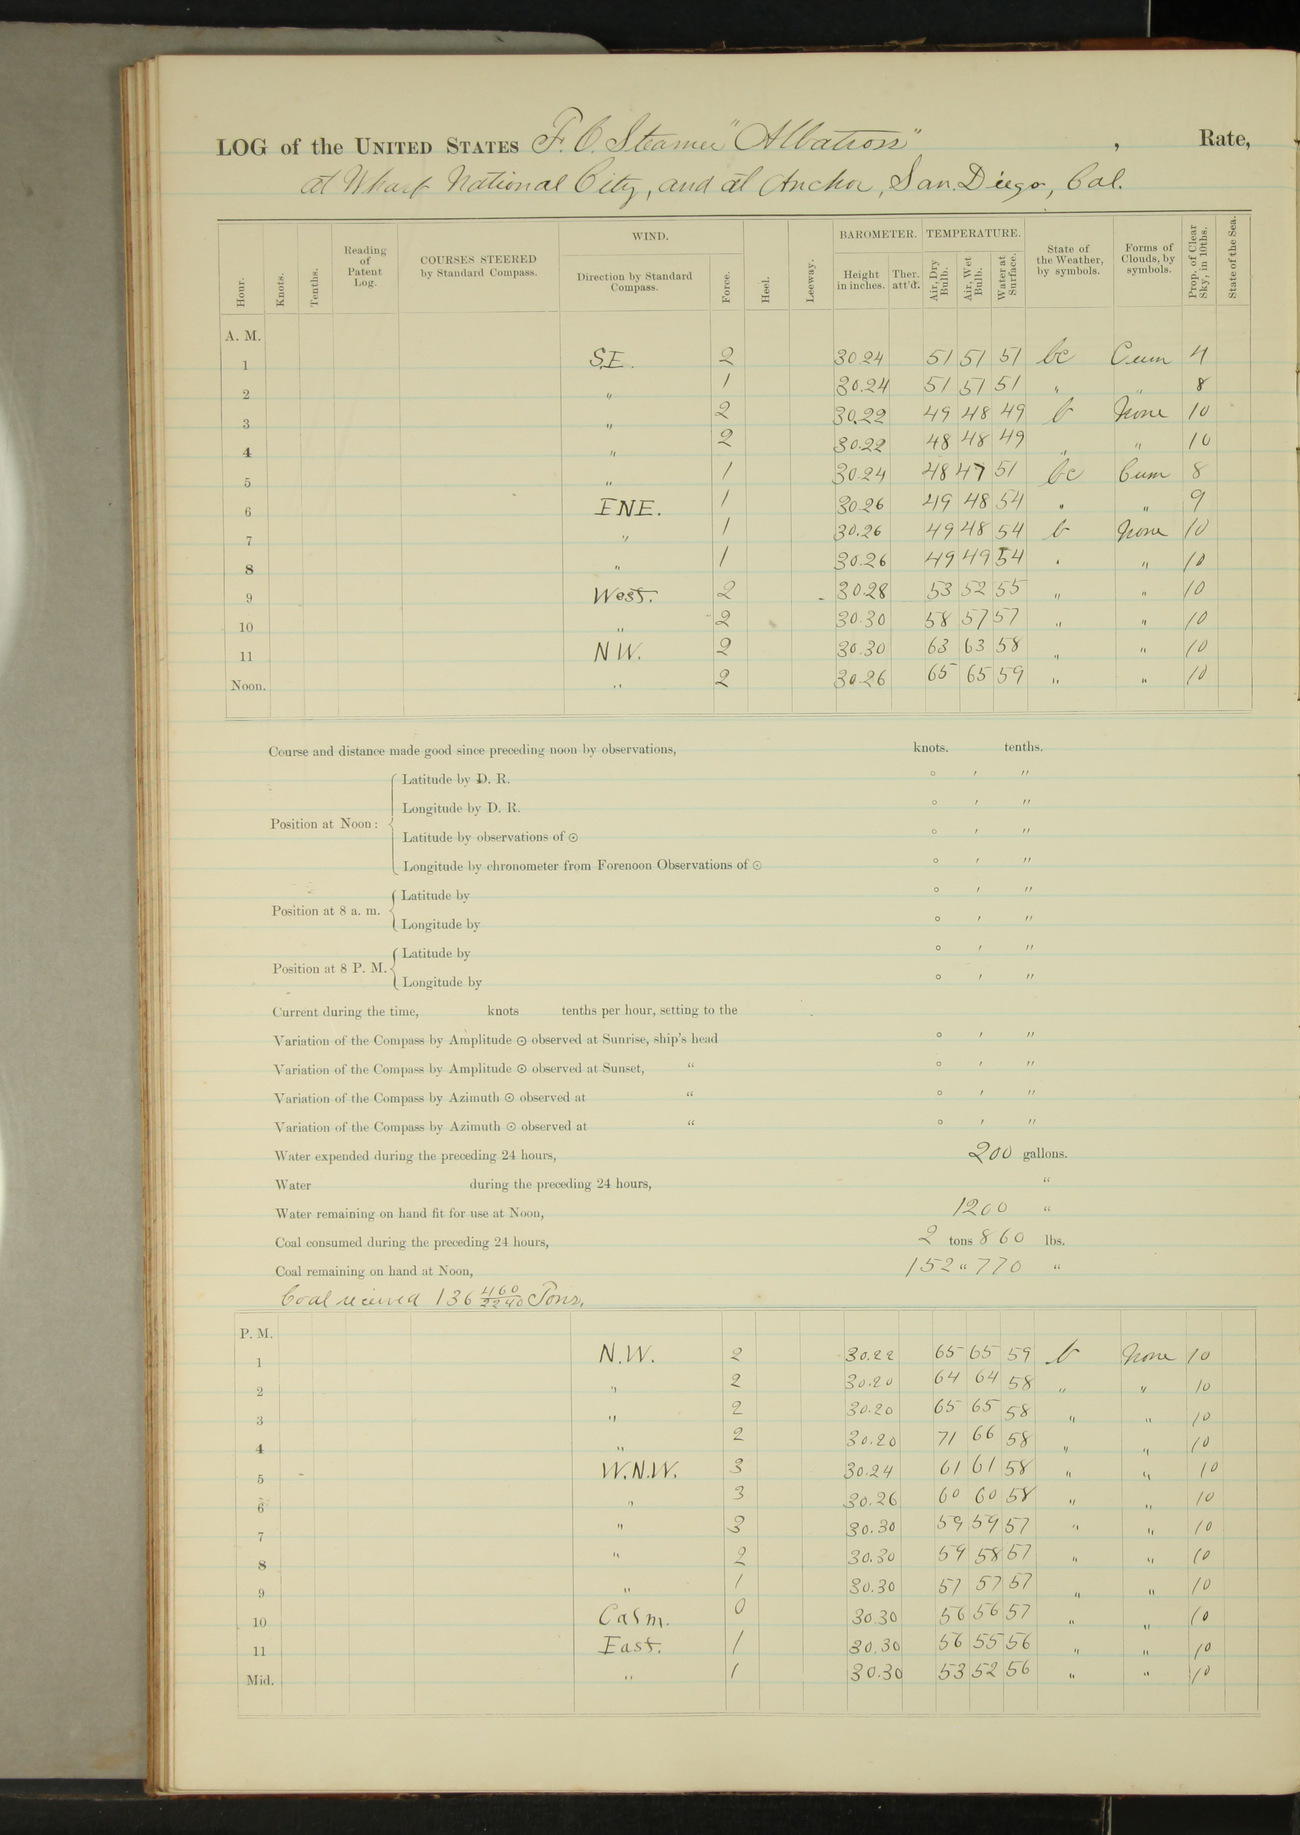 LOG of the UNITED STATES F. C. Steamer "Albatross", Rate,
at Wharf National City, and at Anchor, San Diego, Cal.
Hour. Knots. Tenths. Reading of Patent Log. COURSES STEERED by Standard Compass. WIND. Direction by Standard Compass. Force. Heel. Leeway. BAROMETER. Height in inches. Ther. att'd. TEMPERATURE. Air, Dry Bulb. Air, Wet Bulb. Water at Surface. State of the Weather, by symbols. Forms of Clouds, by symbols. Prop. of Clear Sky, in 10ths. State of the Sea.
A. M.
1 S.E. 2 30.24 51 51 51 bc Cum 4
2 " 1 30.24 51 51 51 " " 8
3 " 2 30.22 49 48 49 b None 10
4 " 2 30.22 48 48 49 " " 10
5 " 1 30.24 48 47 51 bc Cum 8
6 ENE. 1 30.26 49 48 54 " " 9
7 " 1 30.26 49 48 54 b None 10
8 " 1 30.26 49 49 54 " " 10
9 West. 2 30.28 53 52 55 " " 10
10 " 2 30.30 58 57 57 " " 10
11 NW. 2 30.30 63 63 58 " " 10
Noon. " 2 30.26 65 65 59 " " 10
Course and distance made good since preceding noon by observations, knots. tenths.
Position at Noon: Latitude by D. R. ° ′ ″
Longitude by D. R. ° ′ ″
Latitude by observations of ☉ ° ′ ″
Longitude by chronometer from Forenoon Observations of ☉ ° ′ ″
Position at 8 a. m. Latitude by ° ′ ″
Longitude by ° ′ ″
Position at 8 P. M. Latitude by ° ′ ″
Longitude by ° ′ ″
Current during the time, knots tenths per hour, setting to the
Variation of the Compass by Amplitude ☉ observed at Sunrise, ship's head ° ′ ″
Variation of the Compass by Amplitude ☉ observed at Sunset, " ° ′ ″
Variation of the Compass by Azimuth ☉ observed at " ° ′ ″
Variation of the Compass by Azimuth ☉ observed at " ° ′ ″
Water expended during the preceding 24 hours, 200 gallons.
Water during the preceding 24 hours, "
Water remaining on hand fit for use at Noon, 1200 "
Coal consumed during the preceding 24 hours, 2 tons 860 lbs.
Coal remaining on hand at Noon, 152 " 770 "
Coal received 136 460/2240 Tons.
P. M.
1 N.W. 2 30.22 65 65 59 b None 10
2 " 2 30.20 64 64 58 " " 10
3 " 2 30.20 65 65 58 " " 10
4 " 2 30.20 71 66 58 " " 10
5 W.N.W. 3 30.24 61 61 58 " " 10
6 " 3 30.26 60 60 58 " " 10
7 " 3 30.30 59 59 57 " " 10
8 " 2 30.30 59 58 57 " " 10
9 " 1 30.30 57 57 57 " " 10
10 Calm. 0 30.30 56 56 57 " " 10
11 East. 1 30.30 56 55 56 " " 10
Mid. " 1 30.30 53 52 56 " " 10